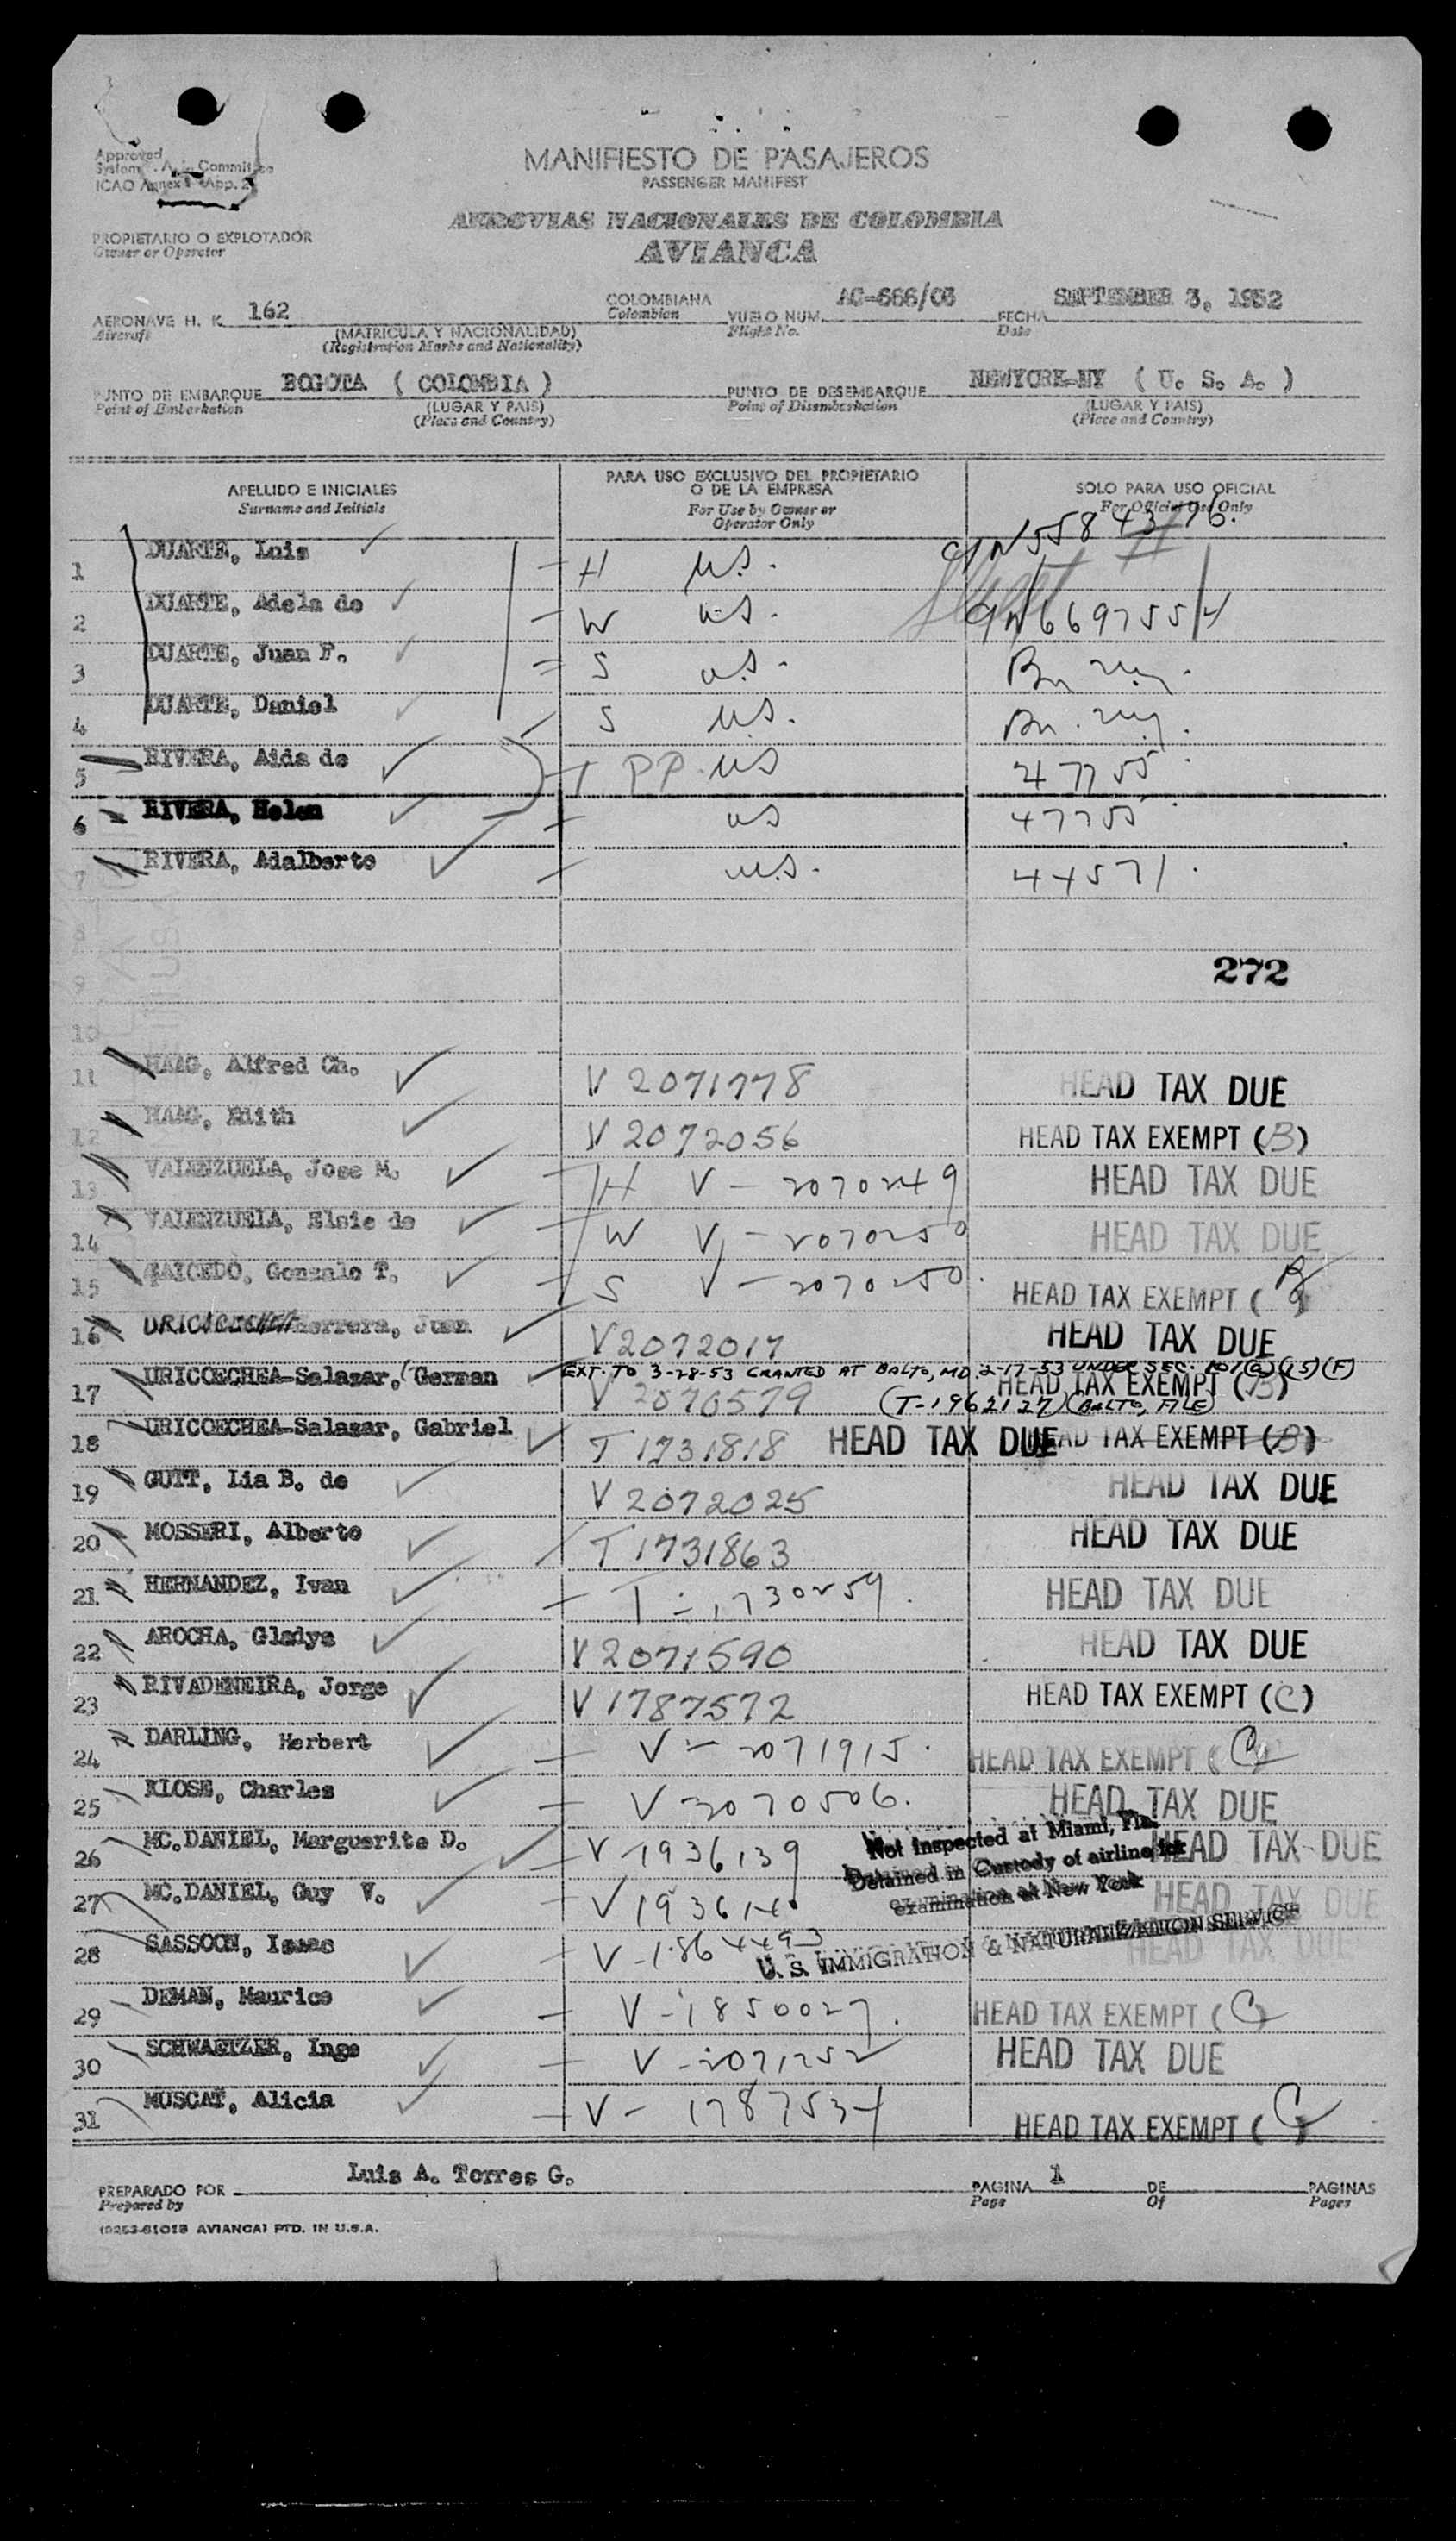 Approved
System. A. Committee
ICAO Annex App. 2
MANIFIESTO DE PASAJEROS
PASSENGER MANIFEST
AEROVIAS NACIONALES DE COLOMBIA
AVIANCA
PROPIETARIO O EXPLOTADOR
Owner or Operator
AERONAVE H. K. 162 COLOMBIANA VUELO NUM. FECHA SEPTEMBER 3, 1952
Aircraft (MATRICULA Y NACIONALIDAD) Colombian Flight No. Date
(Registration Marks and Nationality)
PUNTO DE EMBARQUE BOGOTA ( COLOMBIA ) PUNTO DE DESEMBARQUE NEWYORK-NY ( U. S. A. )
Point of Embarkation (LUGAR Y PAIS) Point of Disembarkation (LUGAR Y PAIS)
(Place and Country) (Place and Country)
APELLIDO E INICIALES PARA USO EXCLUSIVO DEL PROPIETARIO O DE LA EMPRESA SOLO PARA USO OFICIAL
Surname and Initials For Use by Owner or Operator Only For Official Use Only
1 DUARTE, Luis H U.S. 5584376.
2 DUARTE, Adela de W U.S. 6697554
3 DUARTE, Juan F. S U.S.
4 DUARTE, Daniel S U.S.
5 RIVERA, Aida de PP. US 47755
6 RIVERA, Helen US 47755
7 RIVERA, Adalberto U.S. 44571
8
9 272
10
11 HAAG, Alfred Ch. V 2071778 HEAD TAX DUE
12 HAAG, Edith V 2072056 HEAD TAX EXEMPT (B)
13 VALENZUELA, Jose M. H V - 2070249 HEAD TAX DUE
14 VALENZUELA, Elsie de W V - 2070250 HEAD TAX DUE
15 CAICEDO, Gonzalo T. S V - 2070250. HEAD TAX EXEMPT (B)
16 URICOECHEA Herrera, Juan V 2072017 HEAD TAX DUE
EXT. TO 3-28-53 GRANTED AT BALTO, MD. 2-17-53 UNDER SEC. 101(a)(15)(F)
17 URICOECHEA-Salazar, German V 2070579 HEAD TAX EXEMPT (B)
(T-1962127) (BALTO, FILE)
18 URICOECHEA-Salazar, Gabriel T 1731818 HEAD TAX DUE HEAD TAX EXEMPT (B)
19 GUTT, Lia B. de V 2072025 HEAD TAX DUE
20 MOSSERI, Alberto T 1731863 HEAD TAX DUE
21 HERNANDEZ, Ivan T - 1730259. HEAD TAX DUE
22 AROCHA, Gladys V 2071590 HEAD TAX DUE
23 RIVADENEIRA, Jorge V 1787572 HEAD TAX EXEMPT (C)
24 DARLING, Herbert V - 2071915. HEAD TAX EXEMPT (C)
25 KLOSE, Charles V 2070506. HEAD TAX DUE
26 MC.DANIEL, Marguerite D. V-1936139 HEAD TAX DUE
27 MC.DANIEL, Guy V. V 193614 HEAD TAX DUE
Not Inspected at Miami, Fla.
Detained in Custody of airline for
examination at New York
U. S. IMMIGRATION & NATURALIZATION SERVICE
28 SASSOON, Isaac V-1864493 HEAD TAX DUE
29 DEMAN, Maurice V-1850027. HEAD TAX EXEMPT (C)
30 SCHWAETZER, Inge V-2071252 HEAD TAX DUE
31 MUSCAT, Alicia V - 1787534 HEAD TAX EXEMPT (C)
PREPARADO POR Luis A. Torres G. PAGINA 1 DE PAGINAS
Prepared by Page Of Pages
AVIANCA) PTD. IN U.S.A.